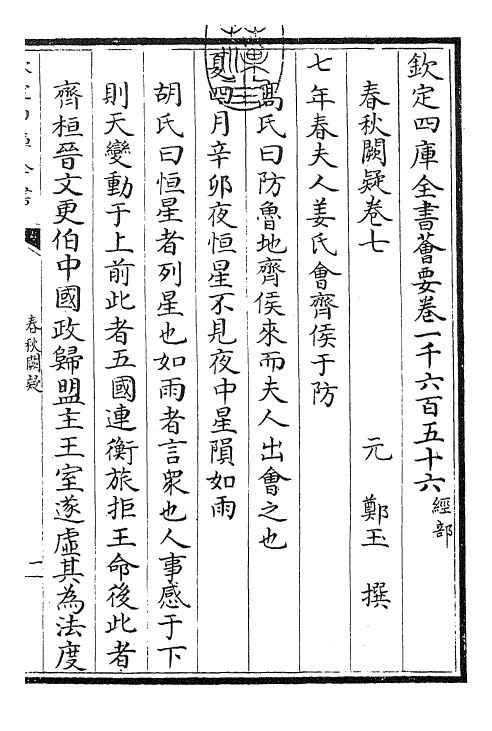 欽定四庫全書薈要卷一千六百五十六 經部
春秋闕疑卷七
元 鄭玉 撰
七年春夫人姜氏會齊侯于防
髙氏曰防魯地齊侯來而夫人出會之也
夏四月辛卯夜恒星不見夜中星隕如雨
胡氏曰恒星者列星也如雨者言衆也人事感于下
則天變動于上前此者五國連衡旅拒王命後此者
齊桓晉文更伯中國政歸盟主王室遂虛其為法度
春秋闕疑